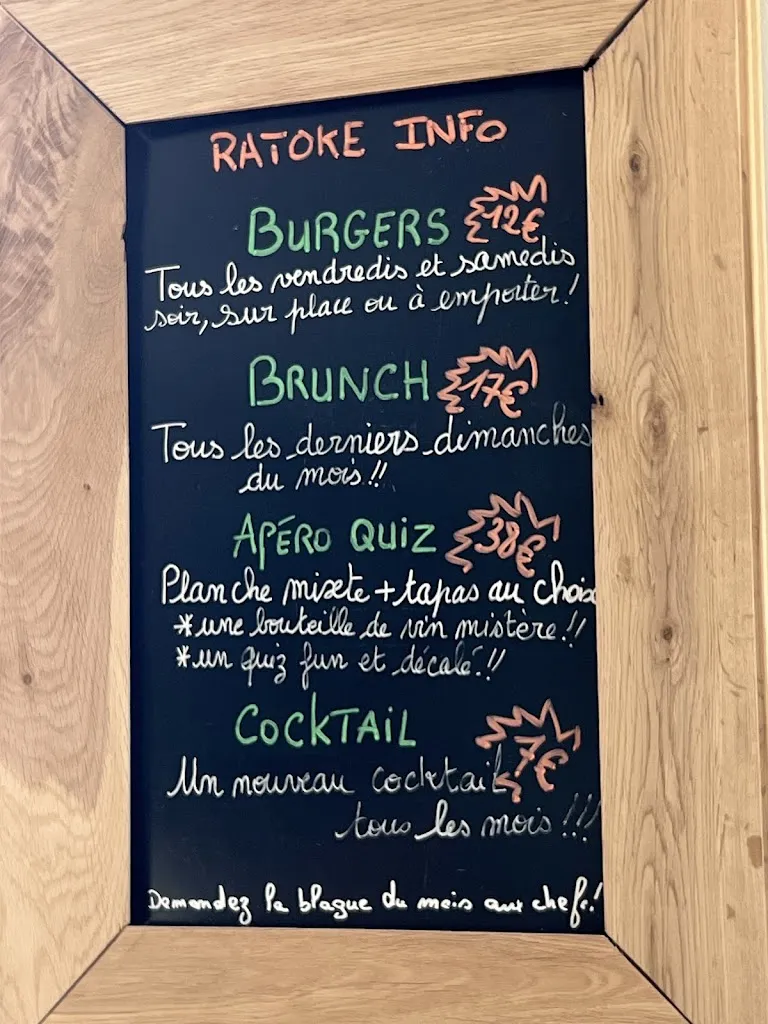 RATOKE INFO
BURGERS 12€
Tous les vendredis et samedis
soir, sur place ou à emporter!
BRUNCH 17€
Tous les derniers dimanches
du mois!!
APÉRO QUIZ 38€
Planche mixte + tapas au choix
*une bouteille de vin mistère!!
*un quiz fun et décalé!!
COCKTAIL 7€
Un nouveau cocktail
tous les mois!!!
Demandez la blague du mois aux chefs!